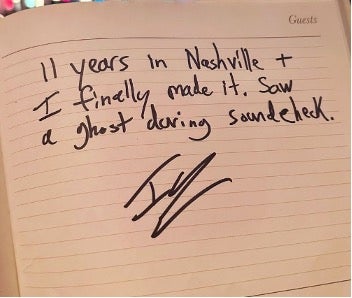 Guests
11 years in Nashville +
I finally made it. Saw
a ghost during soundcheck.